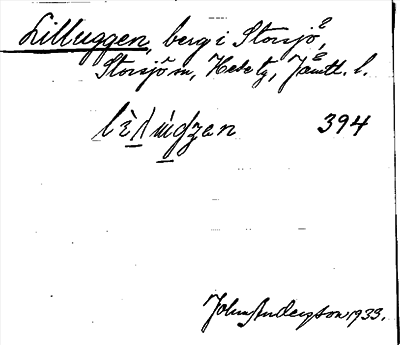 Lilluggen, berg i Storsjö,
Storsjö sn, Hede tg, Jämtl. l.
394
John Anderson 1933.